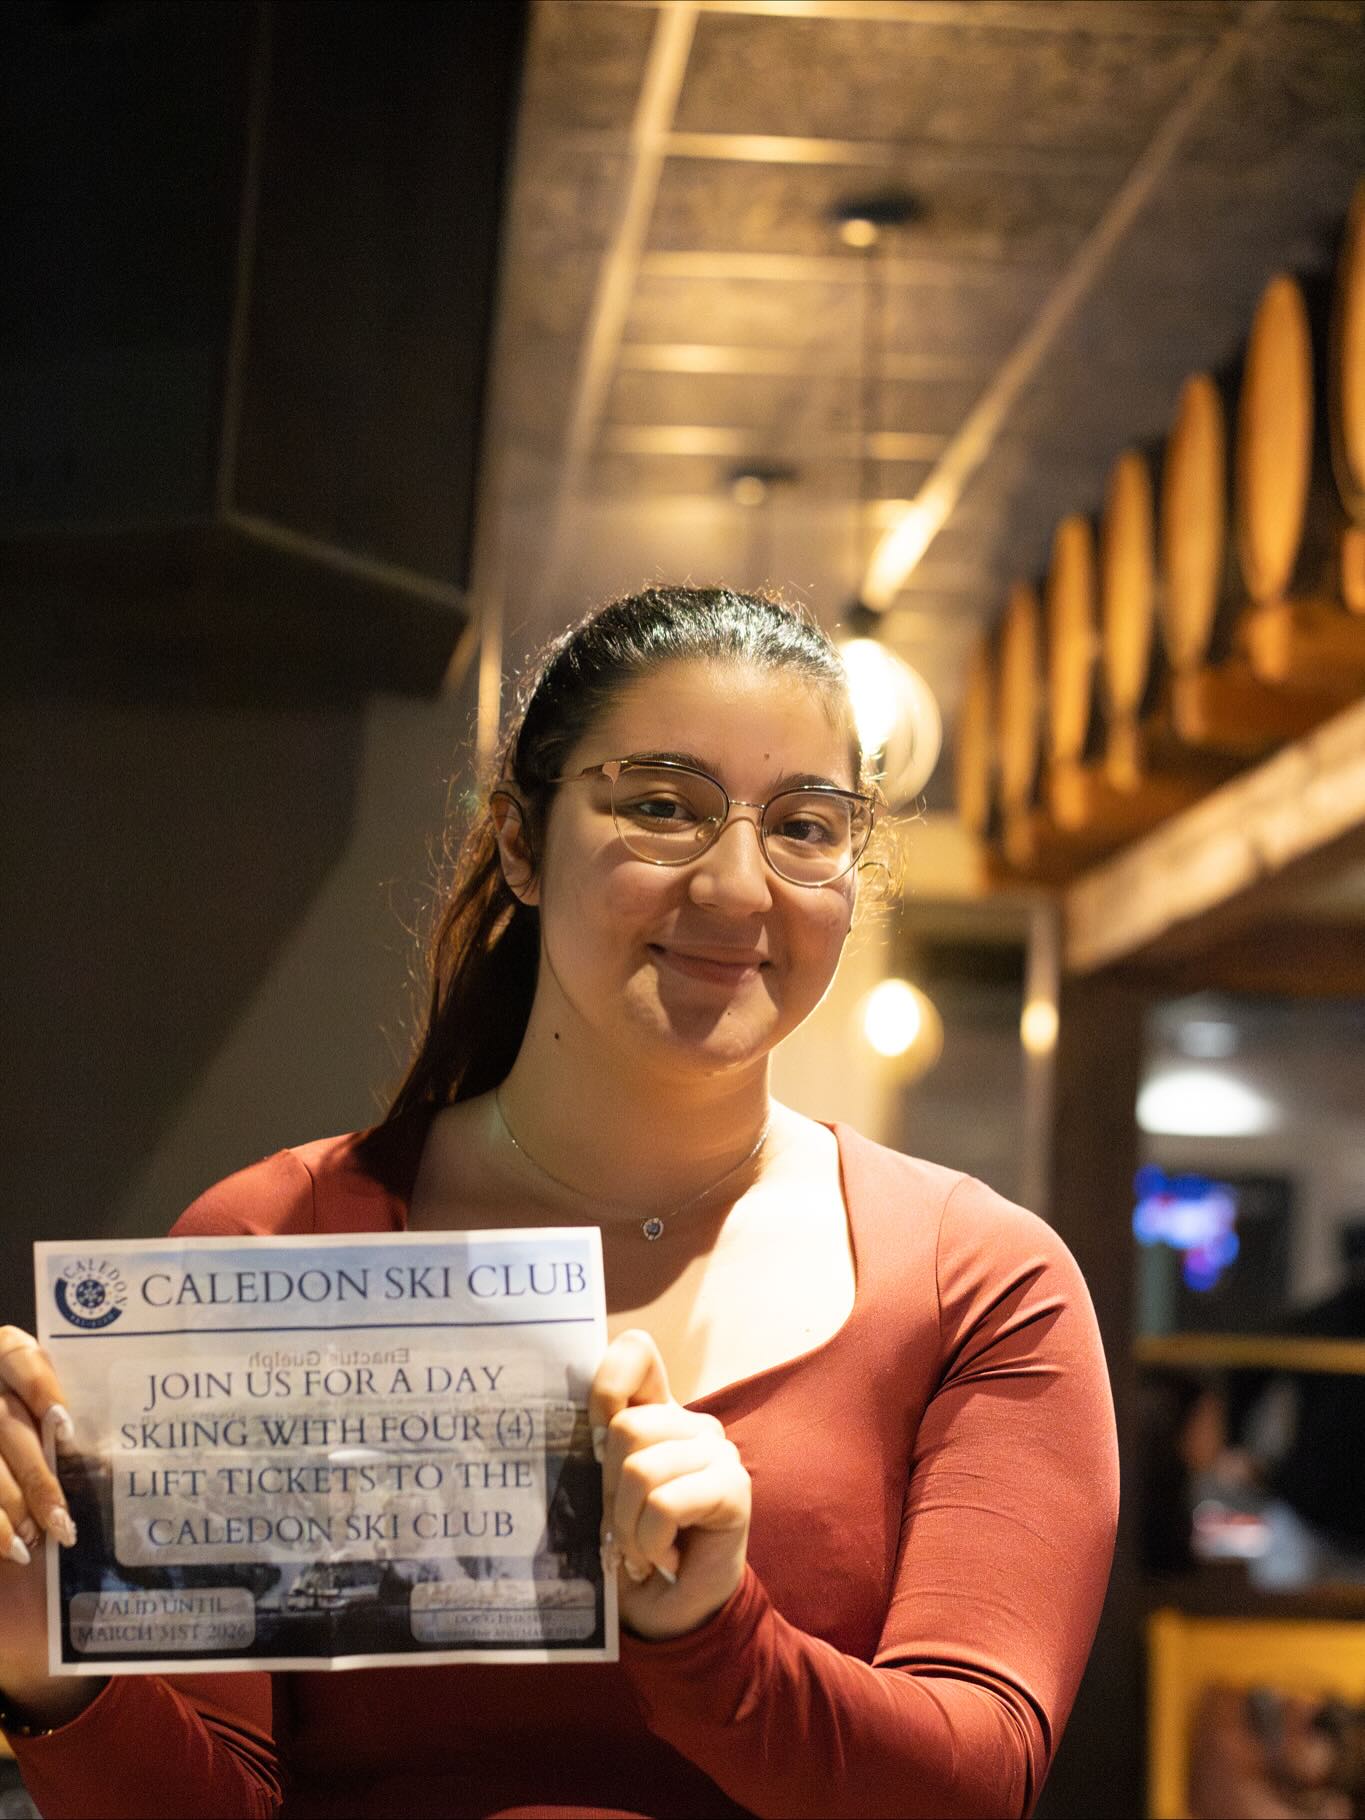 CALEDON
CALEDON SKI CLUB
Enactus Guelph
JOIN US FOR A DAY
SKIING WITH FOUR (4)
LIFT TICKETS TO THE
CALEDON SKI CLUB
VALID UNTIL
MARCH 31ST 2026